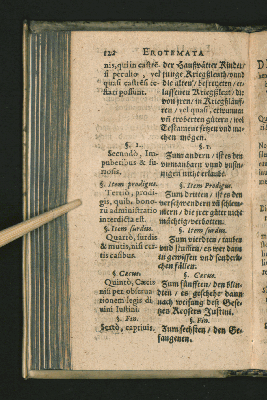 122 EROTEMATA
nis, qui in castrē.
si peculio, vel
quasi castrēsi te-
stati possunt.
§. 1.
Secundò, Im-
puberibus & fu-
riosis.
§. Item prodigus.
Tertiò, prodi-
gis, quib. bono-
rū administratio
interdicta est.
§. Item surdus.
Quartò, surdis
& mutis, nisi cer-
tis casibus.
§. Cæcus.
Quintò, Cæcis
nisi per observa-
tionem legis di-
vini Iustini.
§. Fin.
Sextò, captivis.
der Haußvätter Kinder /
junge Kriegßleut / vnnd
die alten / befreyeten / er-
lassenen Kriegßleut / die
von jren / in Kriegßläuff-
ren / vel quasi, erwunnen
vñ eroberten gütern / wol
Testament setzen vnd ma-
chen mögen.
§. 1.
Zum andern / ist es den
vnmanbarn vnnd vnsin-
nigen nicht erlaubt.
§. Item Prodigus.
Zum dritten / ist es den
verschwendern vñ schlem-
mern / die jrer güter nicht
mächtig / verbotten.
§. Item surdus.
Zum vierdten / tauben
vnd stummen / es wer dann
in gewissen vnd sonderli-
chen fällen.
§. Cæcus.
Zum fünfften / den blin-
den / es geschehe dann
nach weisung deß Gese-
tzes Keysers Justini.
§. Fin.
Zum sechsten / den Ge-
fangenen.